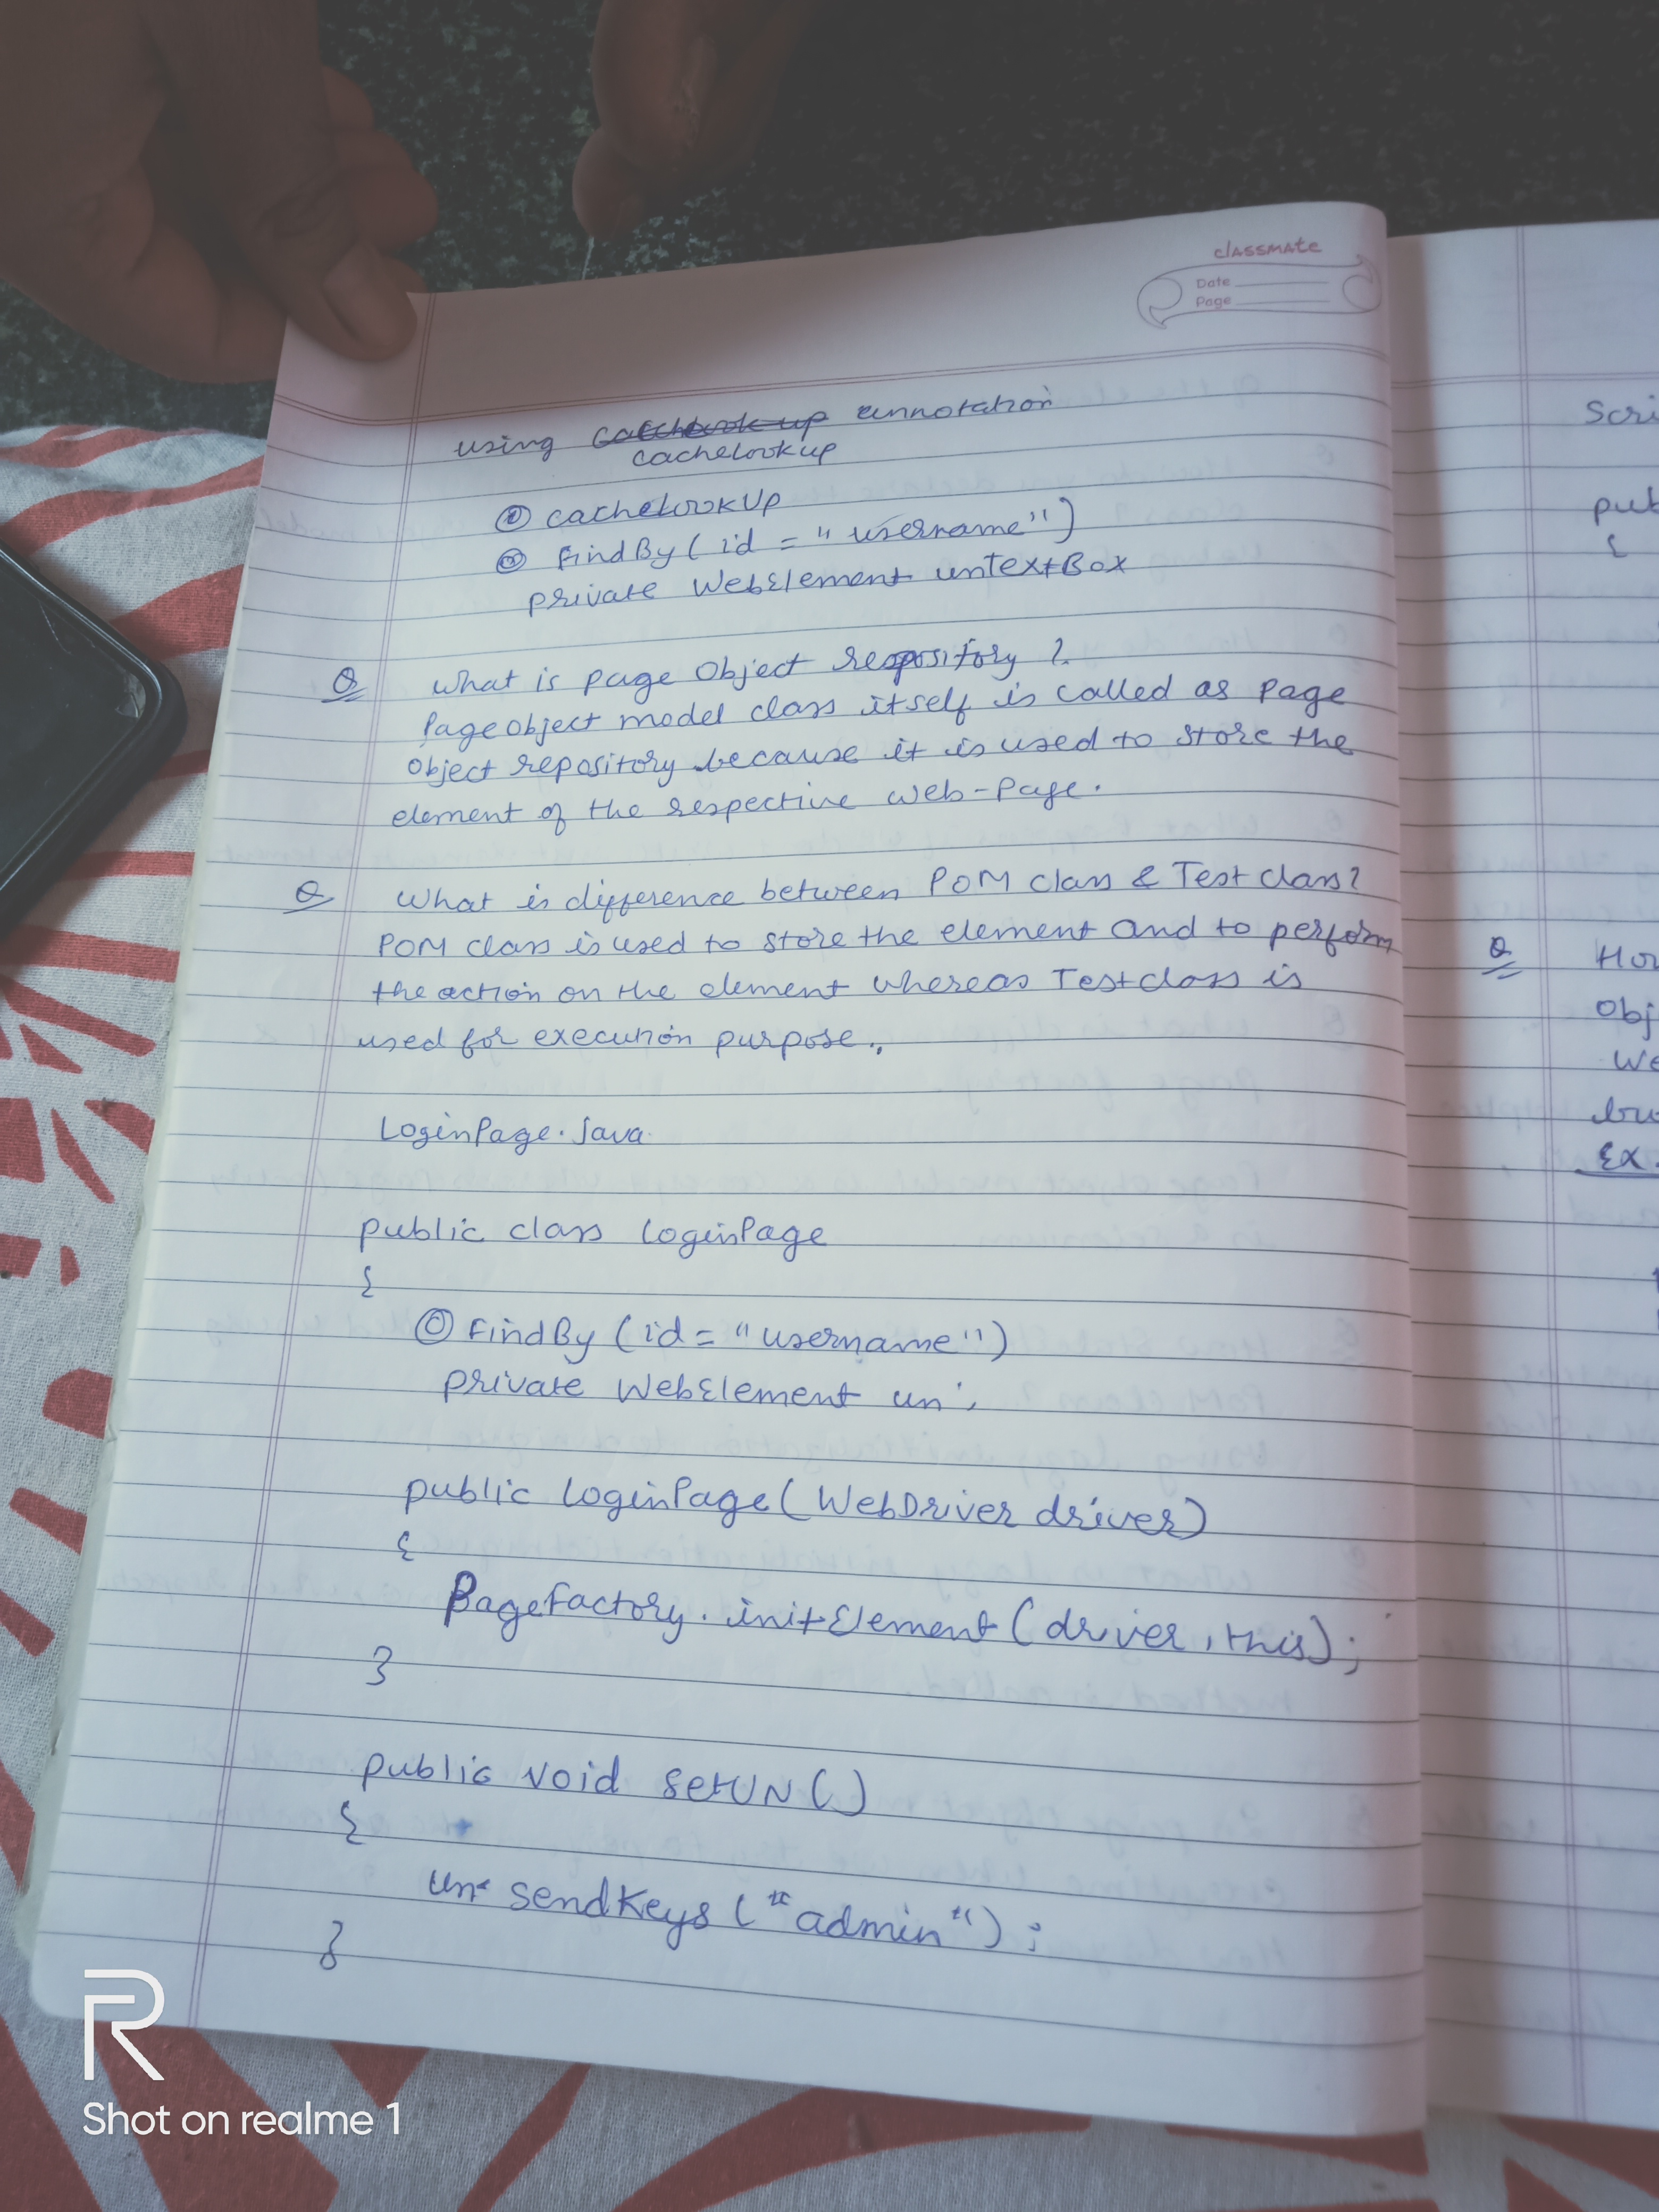 classmate
Date
Page
using Catchlook up annotation
cachelookup
@ cachelookUp
@ FindBy ( id = " username" )
private WebElement unTextBox
Q What is page Object repository ?
Page object model class itself is called as page
object repository because it is used to store the
element of the respective web-page.
Q What is difference between POM class & Test class?
POM class is used to store the element and to perform
the action on the element whereas Test class is
used for execution purpose.
LoginPage.java
public class LoginPage
{
@ FindBy ( id = "username")
private WebElement un;
public LoginPage( WebDriver driver)
{
PageFactory.initElement( driver, this);
}
public void setUN()
{
un.sendKeys ( "admin" ) ;
}
Scri
pub
{
Q Ho
Obj
We
Ex.
R
Shot on realme 1